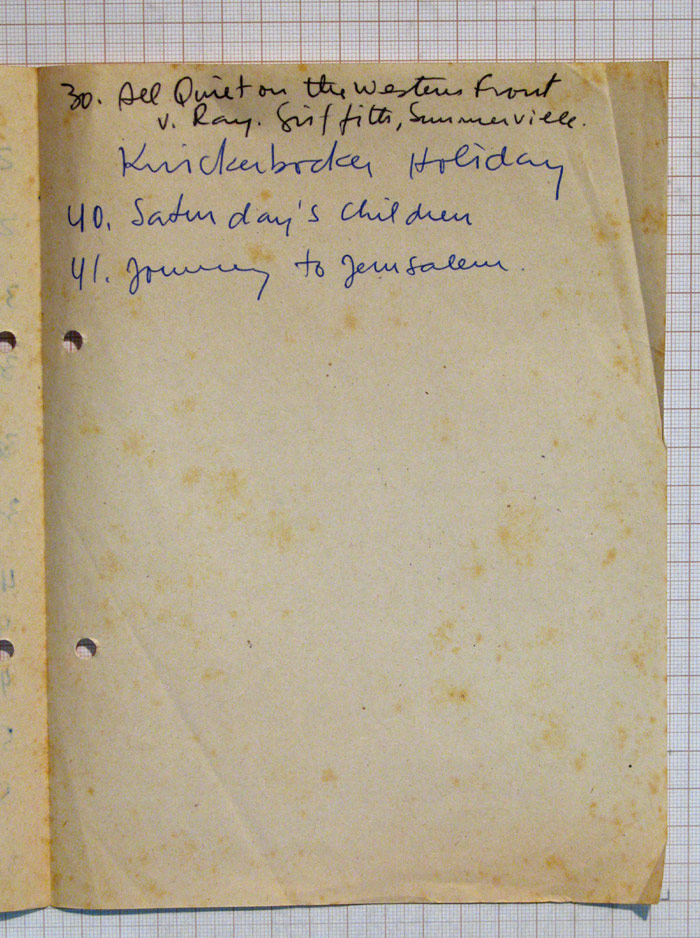 30. All Quiet on the Western Front
v. Ray. Griffith, Summerville.
Knickerbocker Holiday
40. Saturday's Children
41. Journey to Jerusalem.